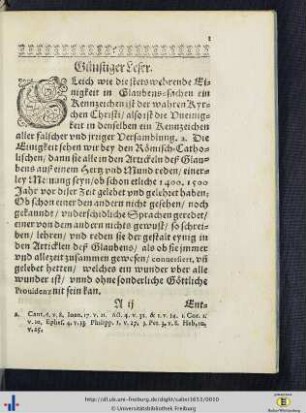 1
Günstiger Leser.
GLeich wie die stets wehrende Ei-
nigkeit in Glaubens-sachen ein
Kennzeichen ist der wahren Kyr-
chen Christi/ also ist die Vneinig-
keit in denselben ein Kennzeichen
aller falscher vnd jrriger Versamblung. a. Die
Einigkeit sehen wir bey den Römisch-Catho-
lischen/ dann sie alle in den Artickeln deß Glau-
bens auß einem Hertz vnd Mund reden/ einer-
ley Meinung seyn/ ob schon etliche 1400. 1500
Jahr vor diser Zeit gelebt vnd gelehret haben;
Ob schon einer den andern nicht gesehen/ noch
gekanndt/ vnderschidliche Sprachen geredet/
einer von dem andern nichts gewust/ so schrei-
ben/ lehren/ vnd reden sie der gestalt eynig in
den Articklen deß Glaubens/ als ob sie jmmer
vnd allezeit zusammen gewesen/ conversiert, vñ
gelebet hetten/ welches ein wunder vber alle
wunder ist/ vnnd ohne sonderliche Göttliche
Providenz nit sein kan.
A ij Ent-
a. Cant. 6. v. 8. Joan. 17. v. 11. Act. 4. v. 32. & 1. v. 14. 1. Cor. 1.
v. 10. Ephes. 4. v. 13 Philipp. 1. v. 27. 1. Pet. 3. v. 8. Heb. 10.
v. 25.
http://dl.ub.uni-freiburg.de/diglit/salat1653/0010
© Universitätsbibliothek Freiburg